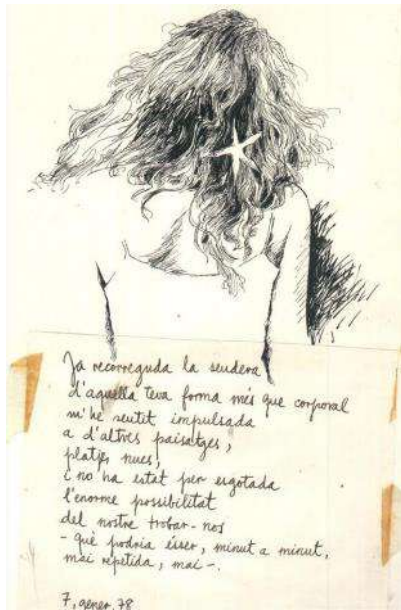 Ja recorreguda la sendera
d'aquella teva forma més que corporal
m'he sentit impulsada
a d'altres paisatges,
platges nues,
i no ha estat per esgotada
l'enorme possibilitat
del nostre trobar-nos
- què podria ésser, minut a minut,
mai repetida, mai -.
7, gener, 78